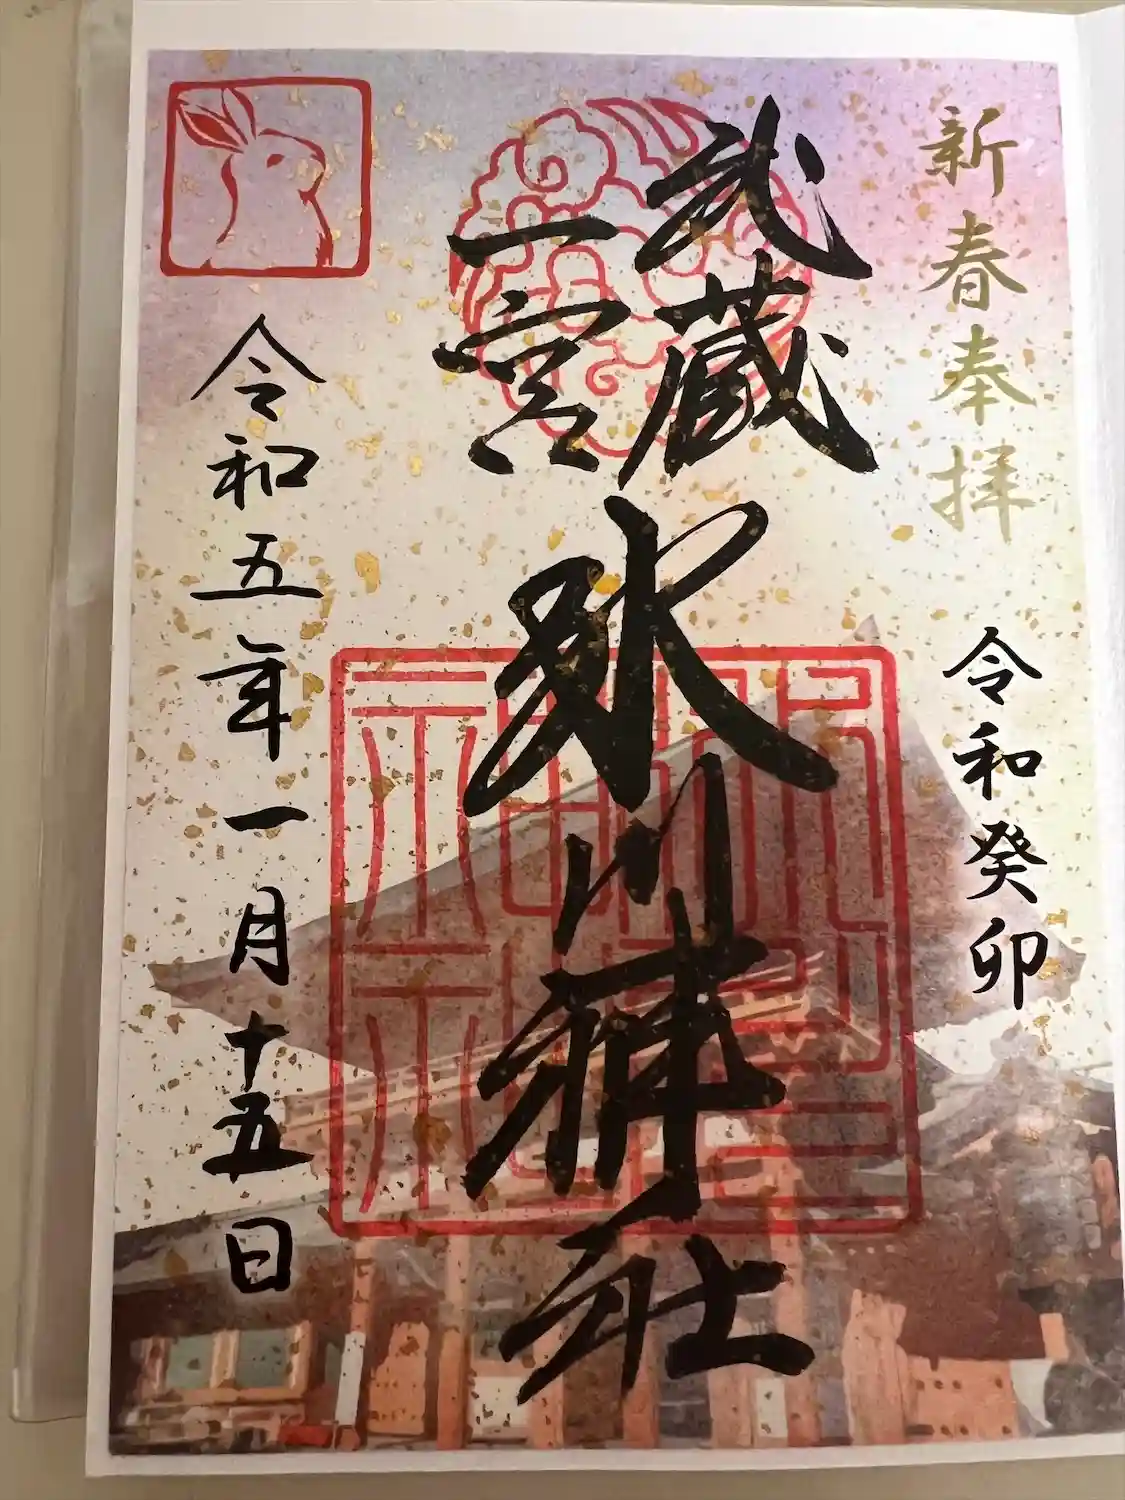 新春奉拝
令和癸卯
武蔵
一宮
氷川神社
令和五年一月十五日
氷川神社